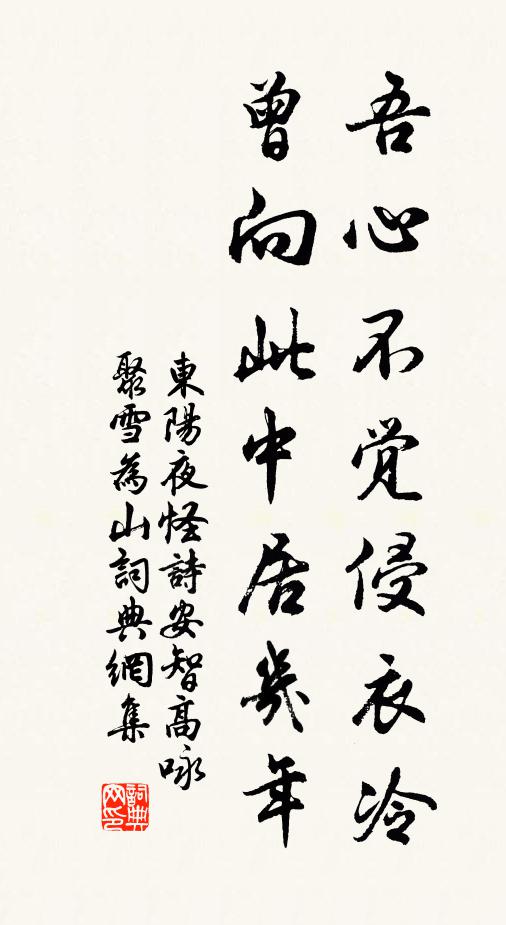 吾心不觉侵衣冷
曾向此中居幾年
東陽夜怪詩安智高咏
聚雪為山詞典網集
詞典网印